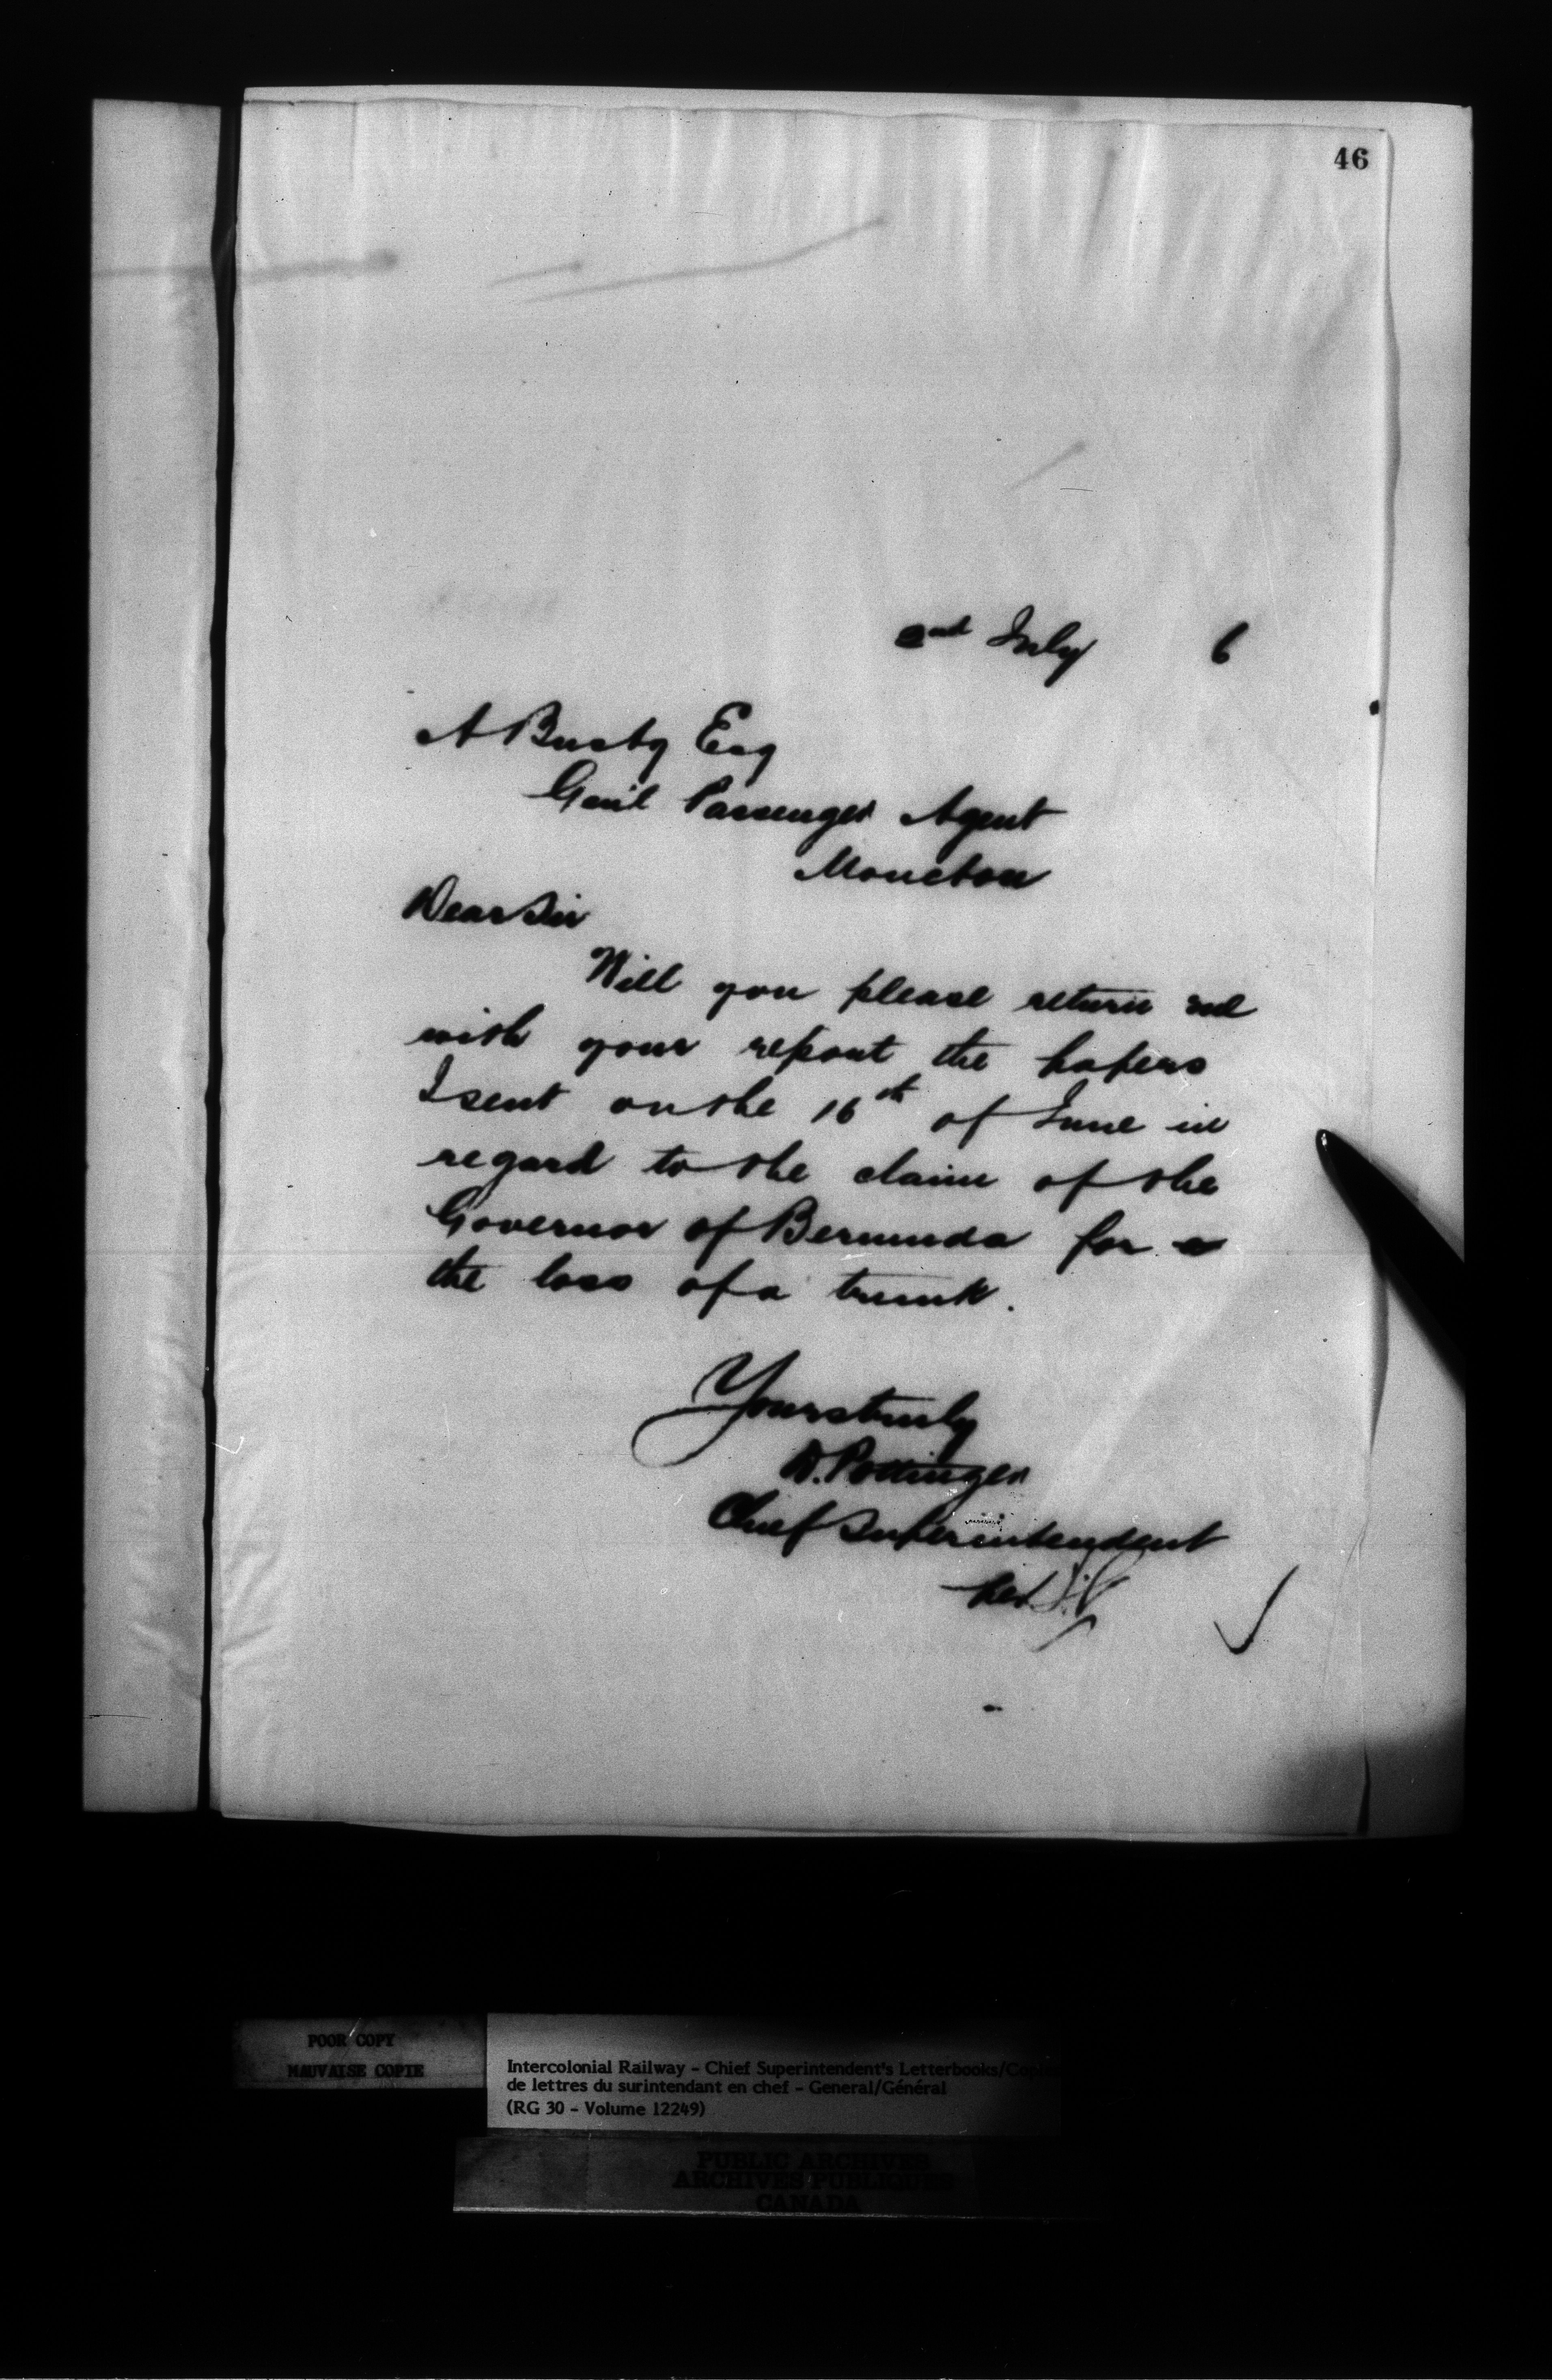 46
2nd July 6
A Busby Esq
Gen'l Passenger Agent
Moncton
Dear Sir
Will you please return me
with your report the papers
I sent on the 16th of June in
regard to the claim of the
Governor of Bermuda for
the loss of a trunk.
Yours truly
D. Pottinger
Chief Superintendent
Per
POOR COPY
MAUVAISE COPIE
Intercolonial Railway - Chief Superintendent's Letterbooks/Copies
de lettres du surintendant en chef - General/Général
(RG 30 - Volume 12249)
PUBLIC ARCHIVES
ARCHIVES PUBLIQUES
CANADA